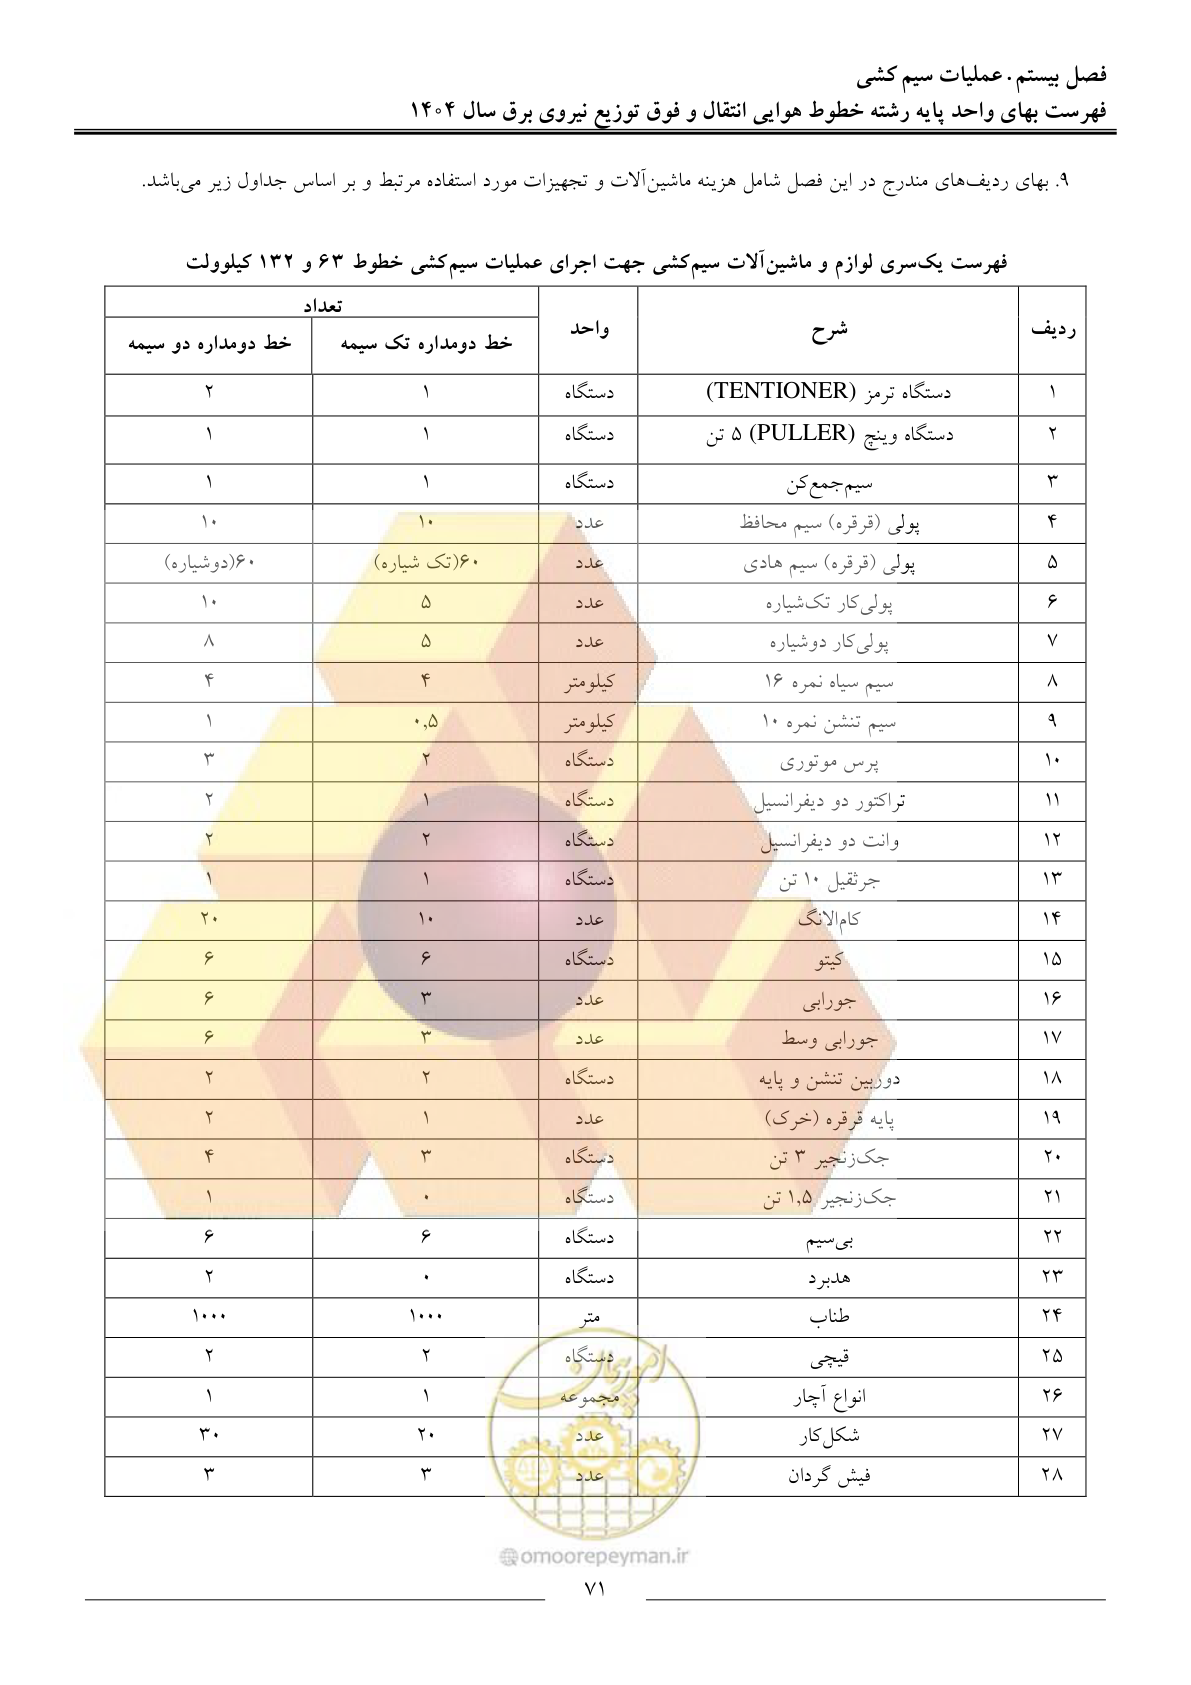 فصل بیستم. عملیات سیم کشی
فهرست بهای واحد پایه رشته خطوط هوایی انتقال و فوق توزیع نیروی برق سال ۱۴۰۴
۹. بهای ردیف‌های مندرج در این فصل شامل هزینه ماشین‌آلات و تجهیزات مورد استفاده مرتبط و بر اساس جداول زیر می‌باشد.
فهرست یک‌سری لوازم و ماشین‌آلات سیم‌کشی جهت اجرای عملیات سیم‌کشی خطوط ۶۳ و ۱۳۲ کیلوولت
ردیف شرح واحد تعداد
خط دومداره تک سیمه خط دومداره دو سیمه
۱ دستگاه ترمز (TENTIONER) دستگاه ۱ ۲
۲ دستگاه وینچ (PULLER) ۵ تن دستگاه ۱ ۱
۳ سیم‌جمع‌کن دستگاه ۱ ۱
۴ پولی (قرقره) سیم محافظ عدد ۱۰ ۱۰
۵ پولی (قرقره) سیم هادی عدد ۶۰(تک شیاره) ۶۰(دوشیاره)
۶ پولی‌کار تک‌شیاره عدد ۵ ۱۰
۷ پولی‌کار دوشیاره عدد ۵ ۸
۸ سیم سیاه نمره ۱۶ کیلومتر ۴ ۴
۹ سیم تنشن نمره ۱۰ کیلومتر ۰,۵ ۱
۱۰ پرس موتوری دستگاه ۲ ۳
۱۱ تراکتور دو دیفرانسیل دستگاه ۱ ۲
۱۲ وانت دو دیفرانسیل دستگاه ۲ ۲
۱۳ جرثقیل ۱۰ تن دستگاه ۱ ۱
۱۴ کام‌الانگ عدد ۱۰ ۲۰
۱۵ کیتو دستگاه ۶ ۶
۱۶ جورابی عدد ۳ ۶
۱۷ جورابی وسط عدد ۳ ۶
۱۸ دوربین تنشن و پایه دستگاه ۲ ۲
۱۹ پایه قرقره (خرک) عدد ۱ ۲
۲۰ جک‌زنجیر ۳ تن دستگاه ۳ ۴
۲۱ جک‌زنجیر ۱,۵ تن دستگاه ۰ ۱
۲۲ بی‌سیم دستگاه ۶ ۶
۲۳ هدبرد دستگاه ۰ ۲
۲۴ طناب متر ۱۰۰۰ ۱۰۰۰
۲۵ قیچی دستگاه ۲ ۲
۲۶ انواع آچار مجموعه ۱ ۱
۲۷ شکل‌کار عدد ۲۰ ۳۰
۲۸ فیش گردان عدد ۳ ۳
امور پیمان
@omoorepeyman.ir
۷۱